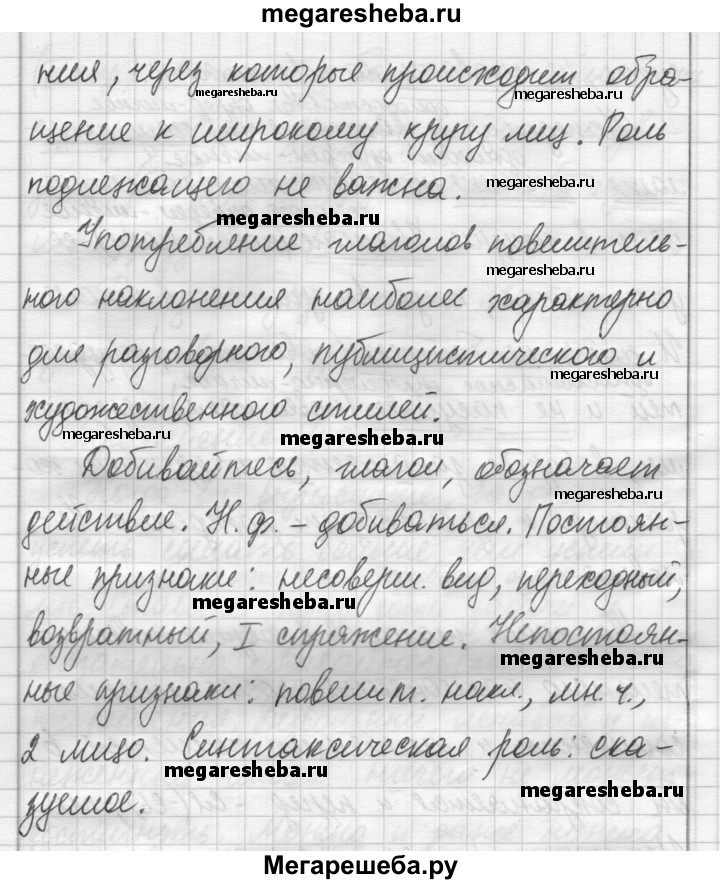 megaresheba.ru
ния, через которые происходит обра-
megaresheba.ru
megaresheba.ru
щение к широкому кругу лиц. Роль
подлежащего не важна.
megaresheba.ru
megaresheba.ru
Употребление глаголов повелитель-
megaresheba.ru
ного наклонения наиболее характерно
для разговорного, публицистического и
megaresheba.ru
художественного стилей.
megaresheba.ru
megaresheba.ru
Добивайтесь, глагол, обозначает
megaresheba.ru
действие. Н.ф. – добиваться. Постоян-
ные признаки: несоверш. вид, переходный,
megaresheba.ru
возвратный, I спряжение. Непостоян-
megaresheba.ru
ные признаки: повелит. накл., мн.ч.,
2 лицо. Синтаксическая роль: ска-
megaresheba.ru
megaresheba.ru
зуемое.
Мегарешеба.ру